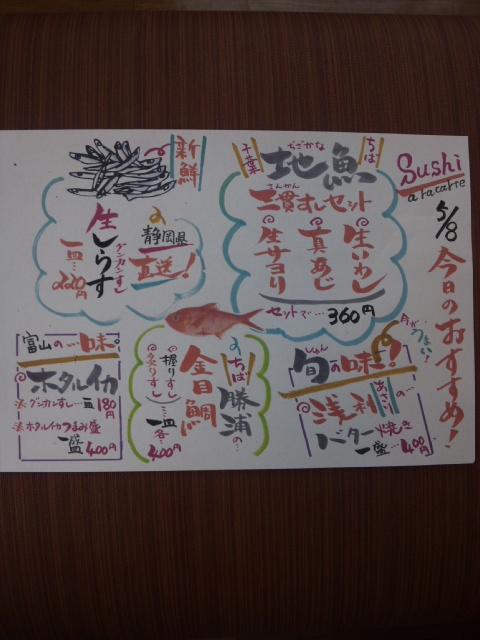 Sushi
a racarte
5/8
今日のおすすめ!
今がうまい!
千葉
ちば
じざかな
地魚
さんかん
三貫すしセット
生いわし
真あじ
生サヨリ
セットで…360円
新鮮
静岡県の
直送!
生しらす
グンカンすし
一皿…220円
しゅん
旬の味!
あさりの…
浅利
バター焼き
一盛…400円
ちば
勝浦の…
金目鯛
握りすし
炙りすし
一皿各…400円
富山の…味。
ホタルイカ
グンカンすし…一皿180円
ホタルイカつまみ盛
一盛400円